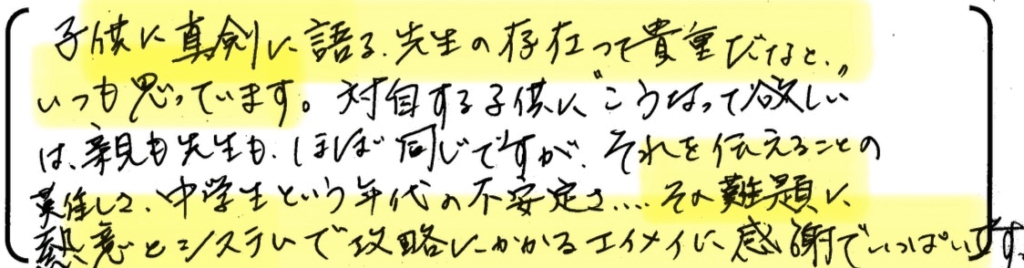 子供に真剣に語る、先生の存在って貴重だなと、
いつも思っています。対自する子供に“こうなって欲しい”
は、親も先生も、ほぼ同じですが、それを伝えることの
難しさ、中学生という年代の不安定さ....その難題に
熱意とシステムで攻略しにかかるエイメイに感謝でいっぱいです。